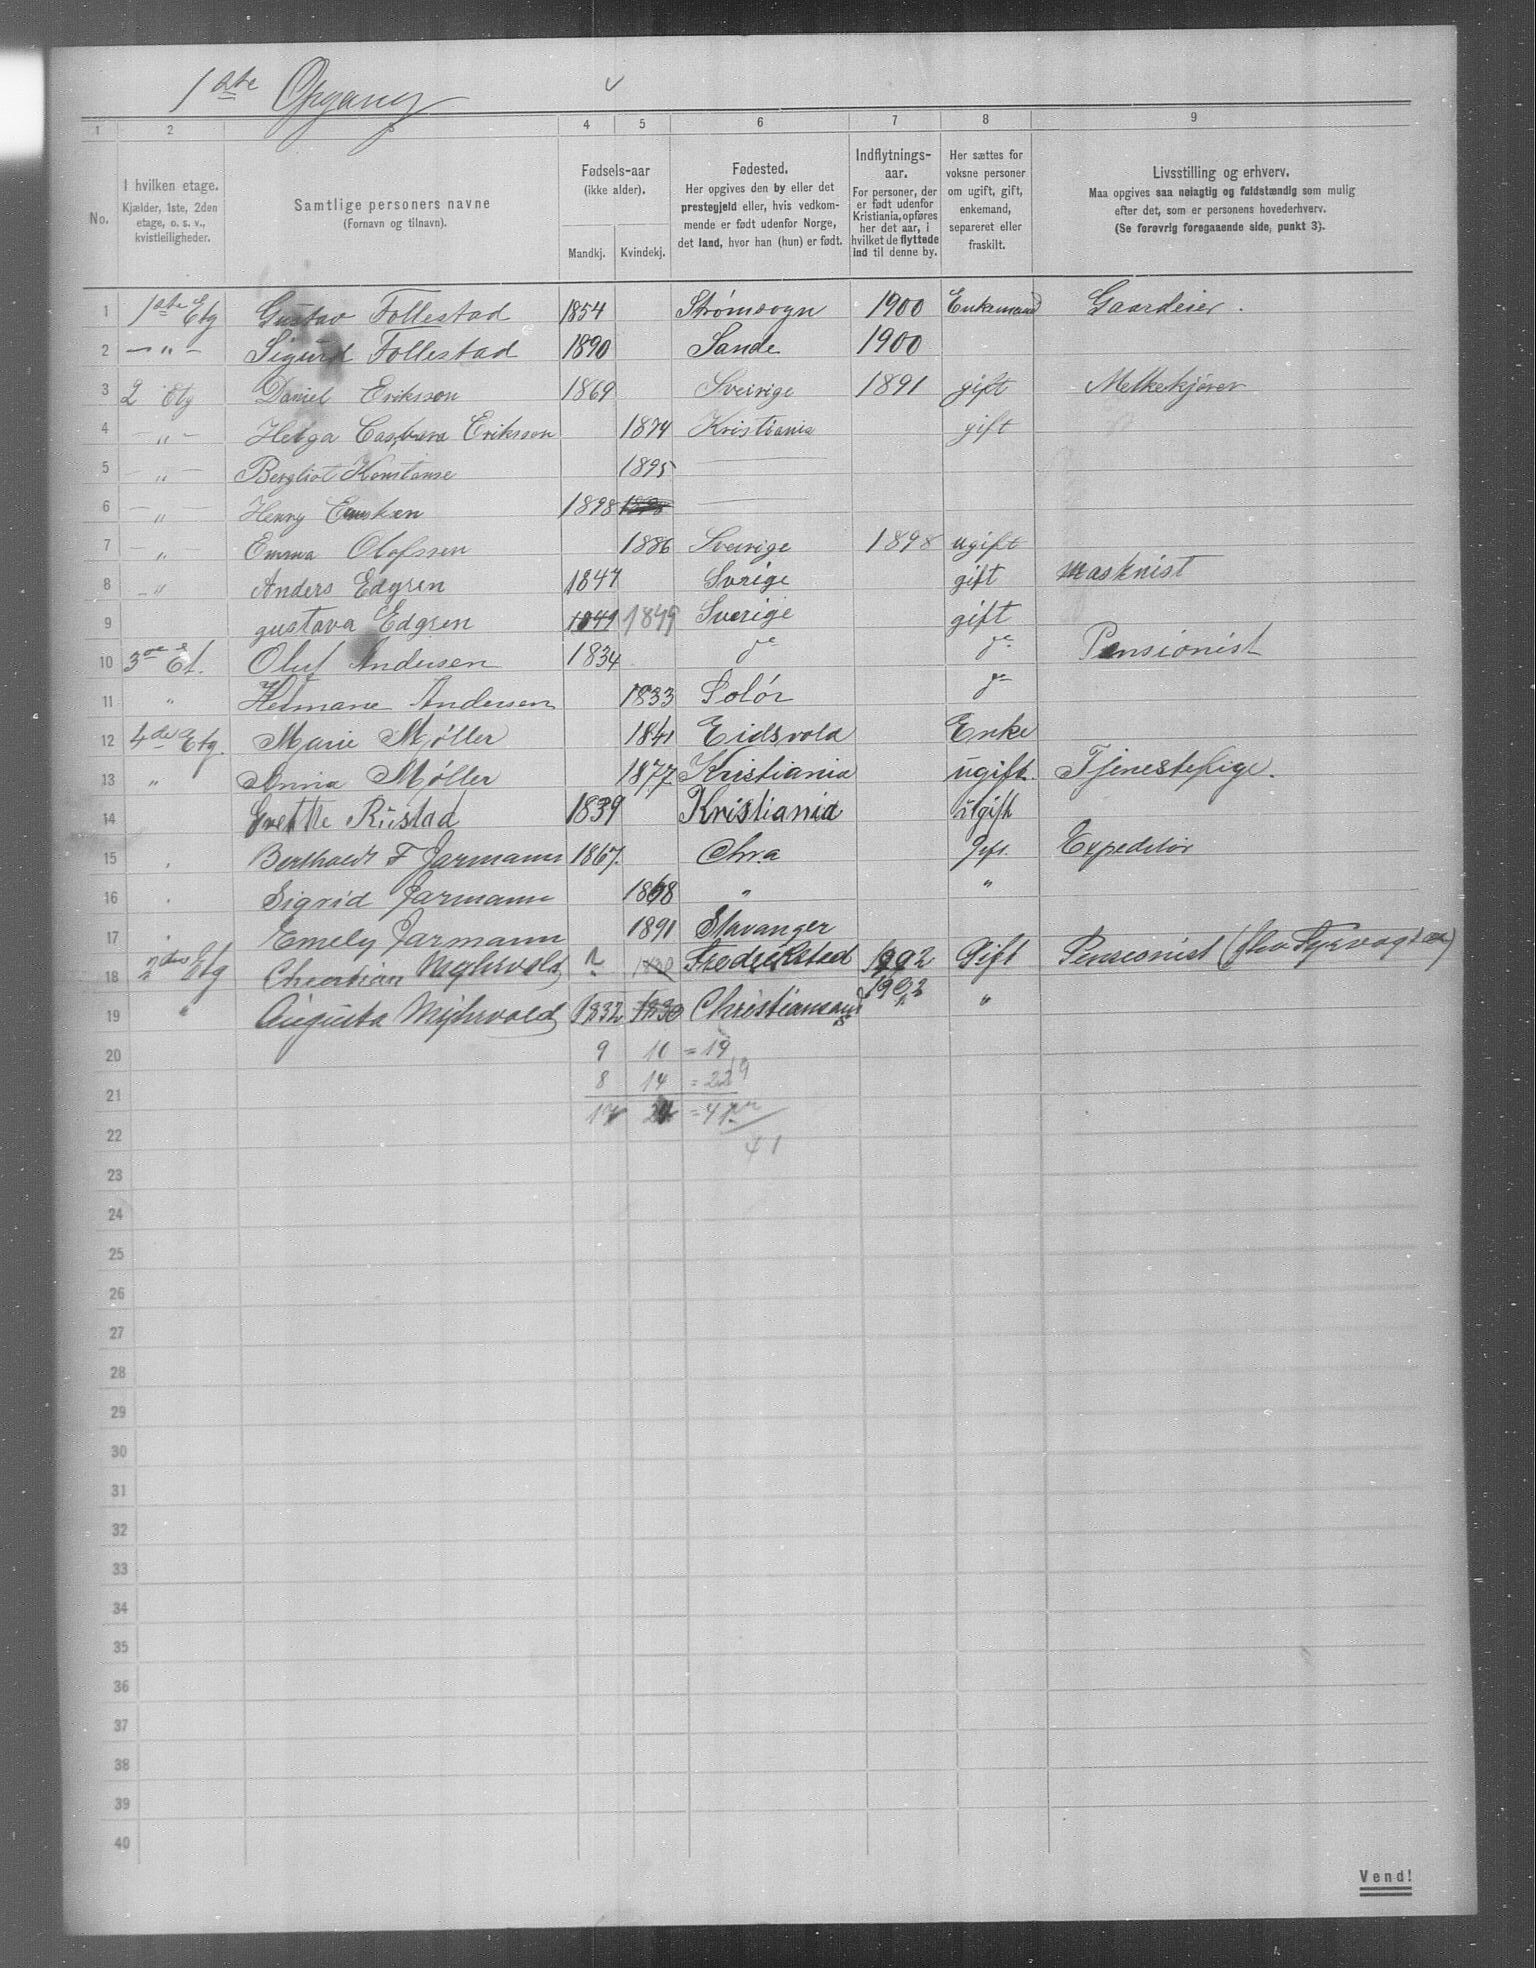 1ste Opgang
1 2 3 4 5 6 7 8 9
No.
I hvilken etage.
Kjælder, 1ste, 2den
etage, o. s. v.,
kvistleiligheder.
Samtlige personers navne
(Fornavn og tilnavn).
Fødsels-aar
(ikke alder).
Mandkj. Kvindekj.
Fødested.
Her opgives den by eller det
prestegjeld eller, hvis vedkom-
mende er født udenfor Norge,
det land, hvor han (hun) er født.
Indflytnings-
aar.
For personer, der
er født udenfor
Kristiania, opføres
her det aar, i
hvilket de flyttede
ind til denne by.
Her sættes for
voksne personer
om ugift, gift,
enkemand,
separeret eller
fraskilt.
Livsstilling og erhverv.
Maa opgives saa nøiagtig og fuldstændig som mulig
efter det, som er personens hovederhverv.
(Se forøvrig foregaaende side, punkt 3).
1 1ste Etg Gustav Follestad 1854 Strømsogn 1900 Enkemand Gaardeier.
2 — " — Sigurd Follestad 1890 Sande 1900
3 2 Etg Daniel Eriksson 1869 Sveirige 1891 gift Melkekjører
4 — " — Helga Eriksson 1874 Kristiania gift
5 — " — Bergliot Konstanse 1895
6 — " Henry 1898
7 — " Emma Olofssen 1886 Sveirige 1898 ugift
8 — " Anders Edgren 1847 Svrige gift Masknist
9 gustava Edgren 1849 1849 Sverige gift
10 3de Et. Oluf Andersen 1834 do do Pensionist
11 " Hermane Andersen 1833 Solör do
12 4de Etg. Marie Møller 1841 Eidsvold Enke
13 " Anna Møller 1877 Kristiania ugift. Tjenestepige.
14 Grethe Rustad 1839 Kristiania ugift
15 " Berthold F Jarmann 1867. Chra Gift. Expeditör
16 " Sigrid Jarmann 1868 " "
17 " Emely Jarmann 1891 Stavanger
18 2den Etg Christian Myhrvold Fredrikstad 1902 Gift Pensionist
19 " Augusta Myhrvold 1832 1830 Christiansand 1902 "
20 9 10 = 19
8 14 = 22
21 17 24 = 41
22 41
23
24
25
26
27
28
29
30
31
32
33
34
35
36
37
38
39
40
Vend!